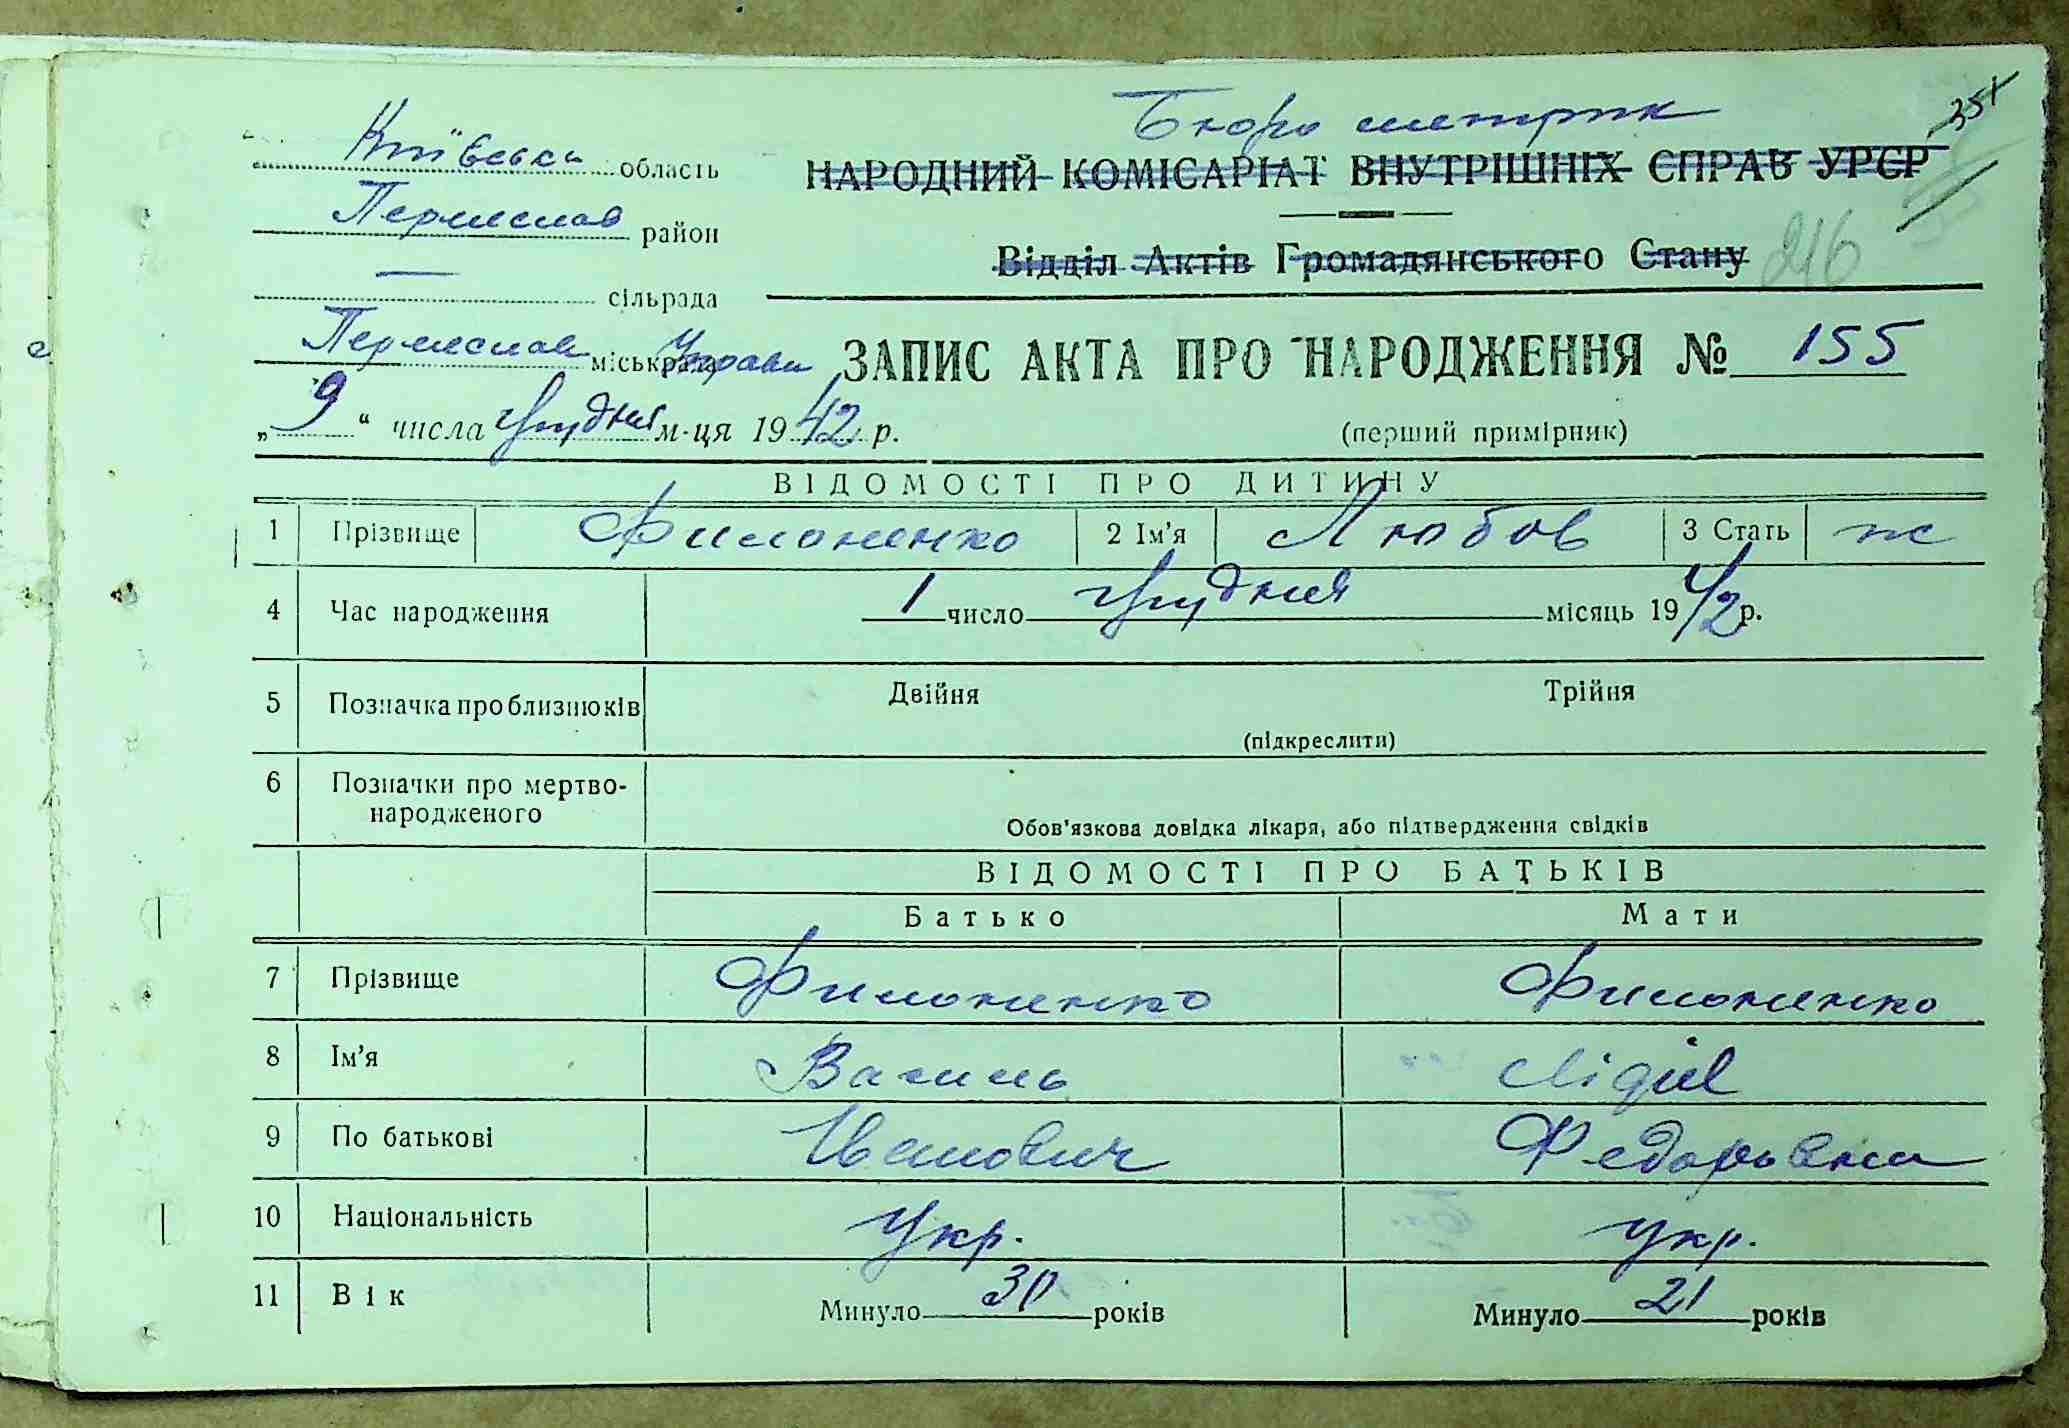 Бюро метрик
351
Київська область
НАРОДНИЙ КОМІСАРІАТ ВНУТРІШНІХ СПРАВ УРСР
Переяслав район
Відділ Актів Громадянського Стану 216
— сільрада
Переяслав міськрада Управи
ЗАПИС АКТА ПРО НАРОДЖЕННЯ № 155
„9“ числа грудня м-ця 1942 р.
(перший примірник)
ВІДОМОСТІ ПРО ДИТИНУ
1 Прізвище Филоненко 2 Ім'я Любов 3 Стать ж
4 Час народження 1 число грудня місяць 1942 р.
5 Позначка про близнюків Двійня Трійня
(підкреслити)
6 Позначки про мертво-
народженого
Обов'язкова довідка лікаря, або підтвердження свідків
ВІДОМОСТІ ПРО БАТЬКІВ
Батько Мати
7 Прізвище Филоненко Филоненко
8 Ім'я Василь Лідія
9 По батькові Іванович Федоровна
10 Національність Укр. Укр.
11 Вік Минуло 30 років Минуло 21 років